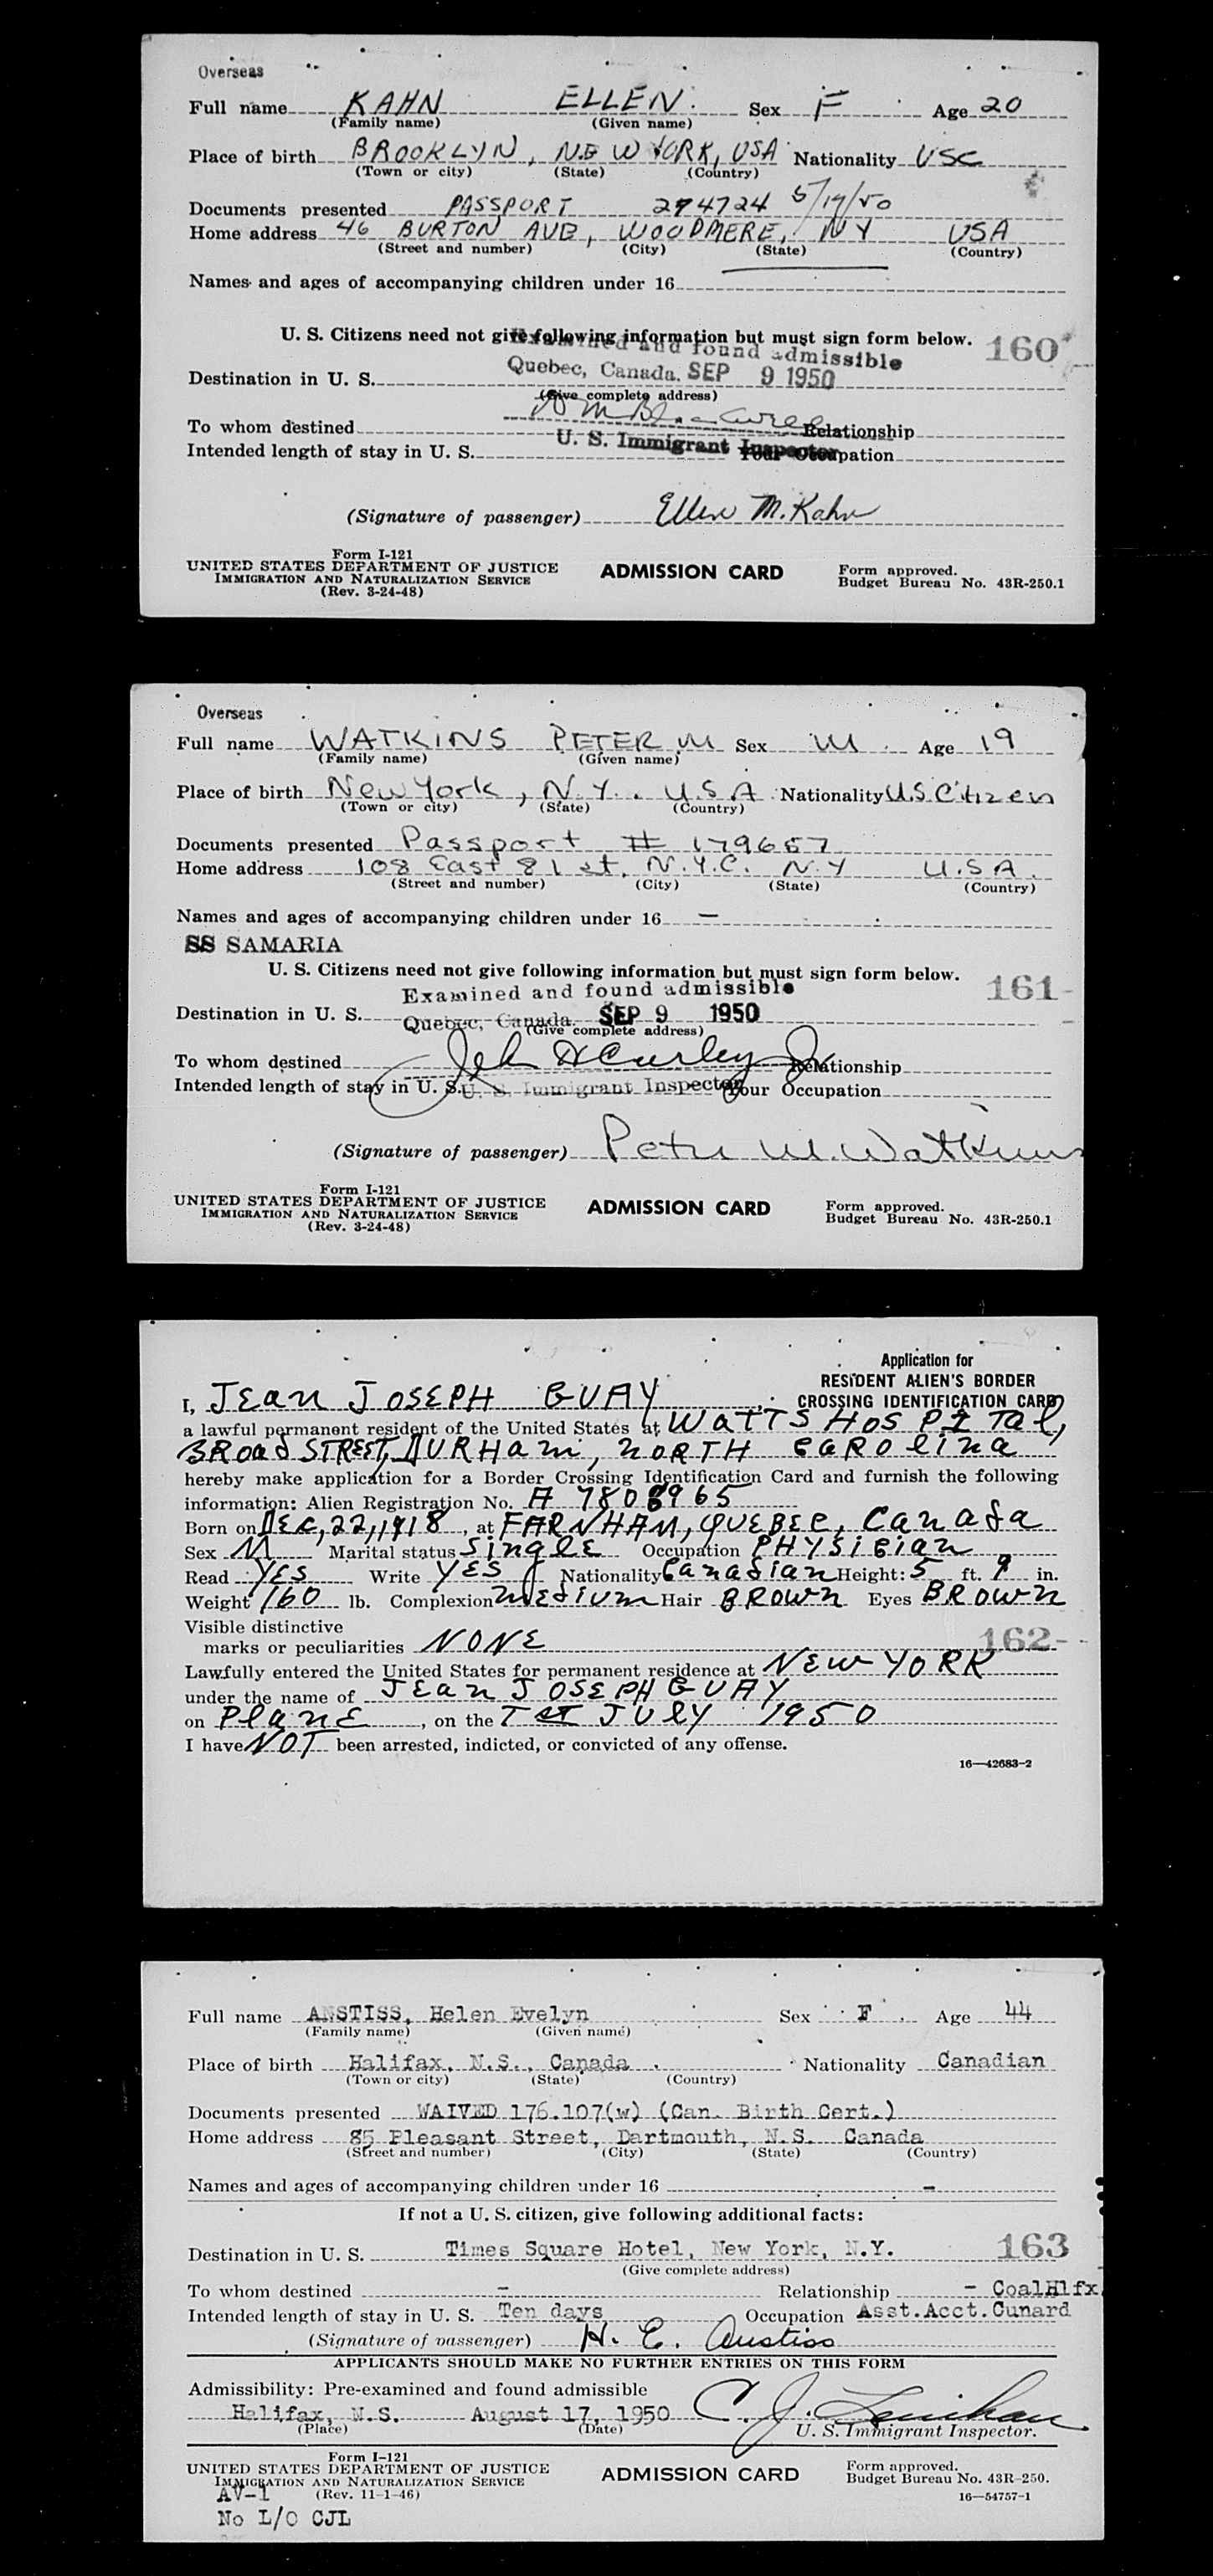 Overseas
Full name KAHN ELLEN Sex F Age 20
(Family name) (Given name)
Place of birth BROOKLYN, NEW YORK, USA Nationality USC
(Town or city) (State) (Country)
Documents presented PASSPORT 274724 5/19/50
Home address 46 BURTON AVE, WOODMERE, NY USA
(Street and number) (City) (State) (Country)
Names and ages of accompanying children under 16
U. S. Citizens need not give following information but must sign form below.
160
Examined and found admissible
Quebec, Canada. SEP 9 1950
Destination in U. S.
(Give complete address)
To whom destined Relationship
U. S. Immigrant Inspector
Intended length of stay in U. S. Your Occupation
(Signature of passenger) Ellen M. Kahn
Form I-121
UNITED STATES DEPARTMENT OF JUSTICE
IMMIGRATION AND NATURALIZATION SERVICE
(Rev. 3-24-48)
ADMISSION CARD
Form approved.
Budget Bureau No. 43R-250.1
Overseas
Full name WATKINS PETER M Sex M Age 19
(Family name) (Given name)
Place of birth New York, N.Y. U.S.A Nationality U.S. Citizen
(Town or city) (State) (Country)
Documents presented Passport # 179657
Home address 108 East 81 st. N.Y.C. N.Y U.S.A.
(Street and number) (City) (State) (Country)
Names and ages of accompanying children under 16 —
SS SAMARIA
U. S. Citizens need not give following information but must sign form below.
161
Examined and found admissible
Destination in U. S.
Quebec, Canada. SEP 9 1950
(Give complete address)
To whom destined Relationship
Intended length of stay in U. S. Your Occupation
U. S. Immigrant Inspector
(Signature of passenger) Peter M. Watkins
Form I-121
UNITED STATES DEPARTMENT OF JUSTICE
IMMIGRATION AND NATURALIZATION SERVICE
(Rev. 3-24-48)
ADMISSION CARD
Form approved.
Budget Bureau No. 43R-250.1
Application for
RESIDENT ALIEN'S BORDER
CROSSING IDENTIFICATION CARD
I, JEan JOSEPH GUAY
a lawful permanent resident of the United States at WATTS HOSPITal,
BROad STREET, DURHam, nORTH CAROlina
hereby make application for a Border Crossing Identification Card and furnish the following
information: Alien Registration No. A 7808965
Born on DEC, 22, 1918, at FARNHAM, QUEBEC, Canada
Sex M Marital status SinglE Occupation PHYSICian
Read YES Write YES Nationality Canadian Height: 5 ft. 9 in.
Weight 160 lb. Complexion mEdium Hair BROWn Eyes BROWn
Visible distinctive
marks or peculiarities NONE
162
Lawfully entered the United States for permanent residence at NEW YORK
under the name of JEan JOSEPH GUAY
on PlanE, on the JUlY 1950
I have NOT been arrested, indicted, or convicted of any offense.
16—42683-2
Full name ANSTISS, Helen Evelyn Sex F Age 44
(Family name) (Given name)
Place of birth Halifax, N.S., Canada Nationality Canadian
(Town or city) (State) (Country)
Documents presented WAIVED 176.107(w) (Can. Birth Cert.)
Home address 85 Pleasant Street, Dartmouth, N.S. Canada
(Street and number) (City) (State) (Country)
Names and ages of accompanying children under 16 -
If not a U. S. citizen, give following additional facts:
Destination in U. S. Times Square Hotel, New York, N.Y.
163
(Give complete address)
To whom destined - Relationship - CoalHlfx.
Intended length of stay in U. S. Ten days Occupation Asst.Acct.Cunard
(Signature of passenger) H. E. Anstiss
APPLICANTS SHOULD MAKE NO FURTHER ENTRIES ON THIS FORM
Admissibility: Pre-examined and found admissible
Halifax, N.S. August 17, 1950 C. J. Lenihan
(Place) (Date) U. S. Immigrant Inspector.
Form I-121
UNITED STATES DEPARTMENT OF JUSTICE
IMMIGRATION AND NATURALIZATION SERVICE
(Rev. 11-1-46)
ADMISSION CARD
Form approved.
Budget Bureau No. 43R-250.
16—54757-1
AV-1
No L/O CJL